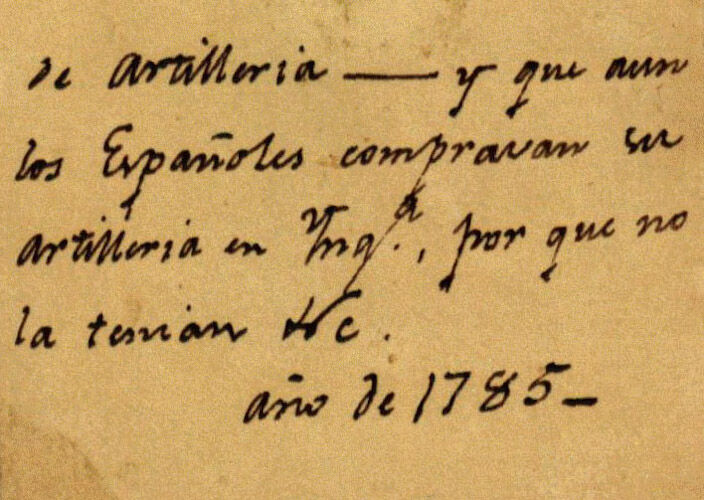 de Artilleria — y que aun
los Españoles compravan su
Artilleria en Yng.ª, por que no
la tenian &c.
año de 1785 –